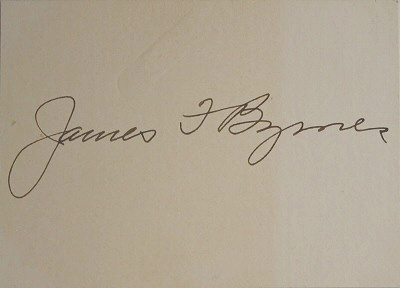 James F Byrnes